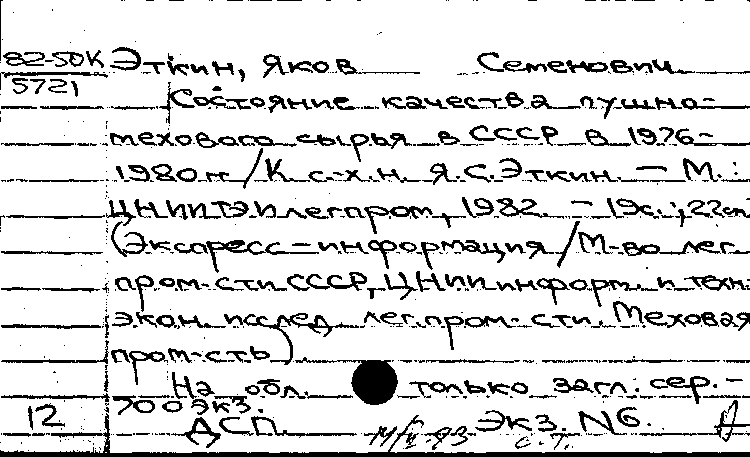 82-50К Эткин, Яков Семенович
5721
Состояние качества пушно-
мехового сырья в СССР в 1976-
1980 гг / К. с.-х.н. Я.С.Эткин. — М. :
ЦНИИТЭИлегпром, 1982. - 19с.; 22см
(Экспресс-информация / М-во лег.
пром-сти СССР, ЦНИИ информ. и техн.
экон. исслед. лег.пром-сти. Меховая
пром-сть).
На обл. только загл. сер. -
700 экз.
12 ДСП. Экз. N6.
с. т.